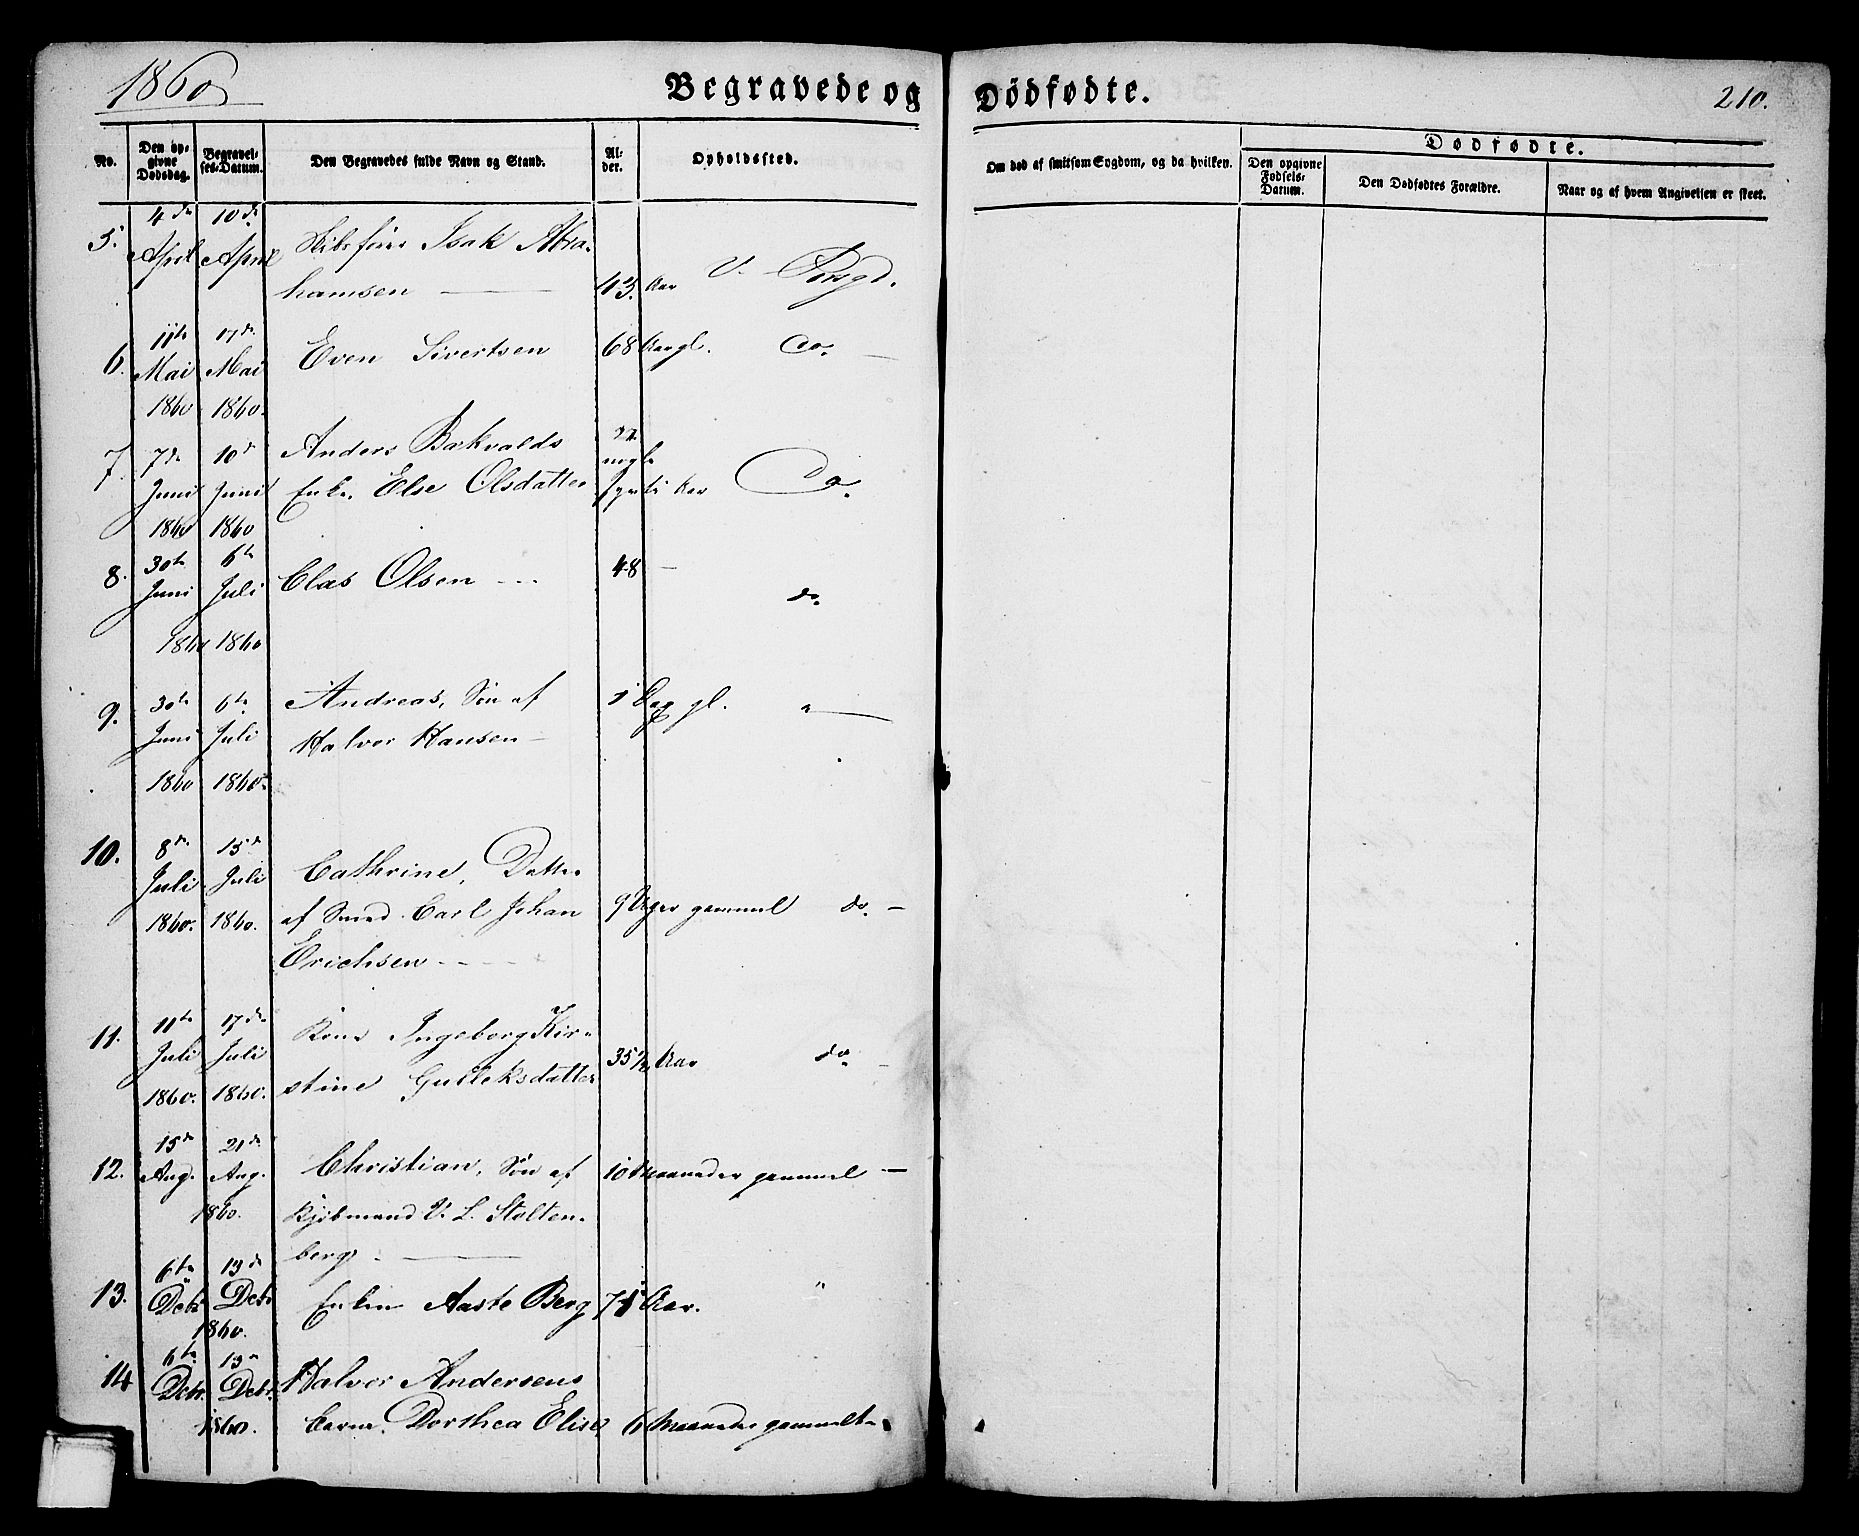 1860
Begravede og Dødfødte.
210.
No.
Den op-
givne
Dødsdag.
Begravel-
ses-Datum.
Den Begravedes fulde Navn og Stand.
Al-
der.
Opholdssted.
Om død af smitsom Sygdom, og da hvilken.
Dødfødte.
Den opgivne
Fødsels-
Datum.
Den Dødfødtes Forældre.
Naar og af hvem Angivelsen er skeet.
5. 4de April 10de April
Skibsfører Isak Abra-
hamsen 43 Aar V. Porsgd.
6. 11te Mai 1860 17de Mai 1860.
Even Sivertsen 68 Aar gl. Do.
7. 7de Juni 1860 10de Juni 1860
Anders Bakvalds
Enke, Else Olsdatter nogle Aar Do.
8. 30te Juni 1860 6te Juli 1860
Clas Olsen 48 - do.
9. 30te Juni 1860 6te Juli 1860.
Andreas, Søn af
Halvor Hansen - 1 Dag gl. "
10. 8de Juli 1860. 15de Juli 1860.
Cathrine, Datter
af Smed Carl Johan
Erichsen 9 Uger gammel do. -
11. 11te Juli 1860. 17de Juli 1860.
Kone Ingeborg Kir-
stine Gulleksdatter 35 1/2 Aar do.
12. 15de Aug. 21de Aug. 1860.
Christian, Søn af
Kjøbmand V. L. Stolten-
berg. 10 Maaneder gammel -
13. 6te Decbr 13de Decbr 1860.
Enken Aaste Berg Aar. "
14 6te Decbr. 13de Decbr. 1860.
Halvor Andersens
Barn, Dorthea Elise 6 Maaneder gammelt